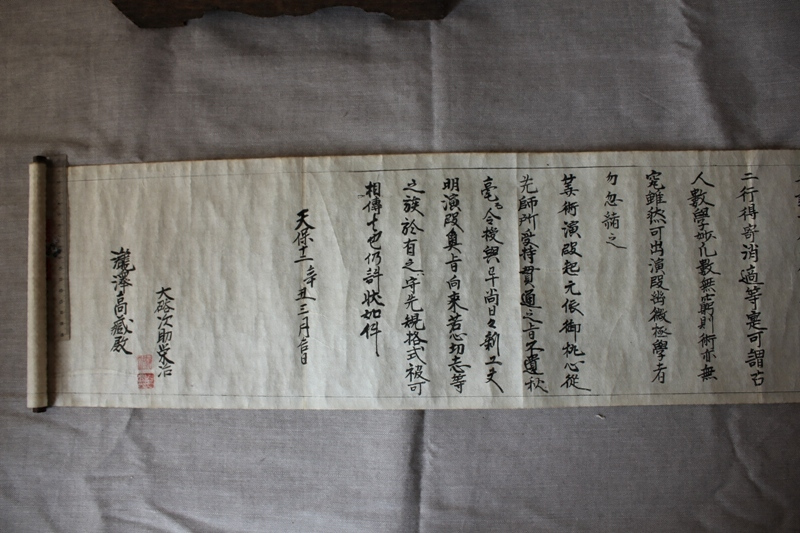 二行得寄消適等是可謂古
人數學無凡數無窮則術亦無
窮雖然可出演段當微極學者
勿忽緒之
算術演段起元依御執心從
先師所受持貫通之旨不遺秋
毫令授與早尚日々新工夫
明演段奥旨向来苦心切志等
之族於有之守先規格式被可
相傳者也仍許狀如件
天保十二年丑三月吉日
大路次助榮治
瀧澤高藏殿